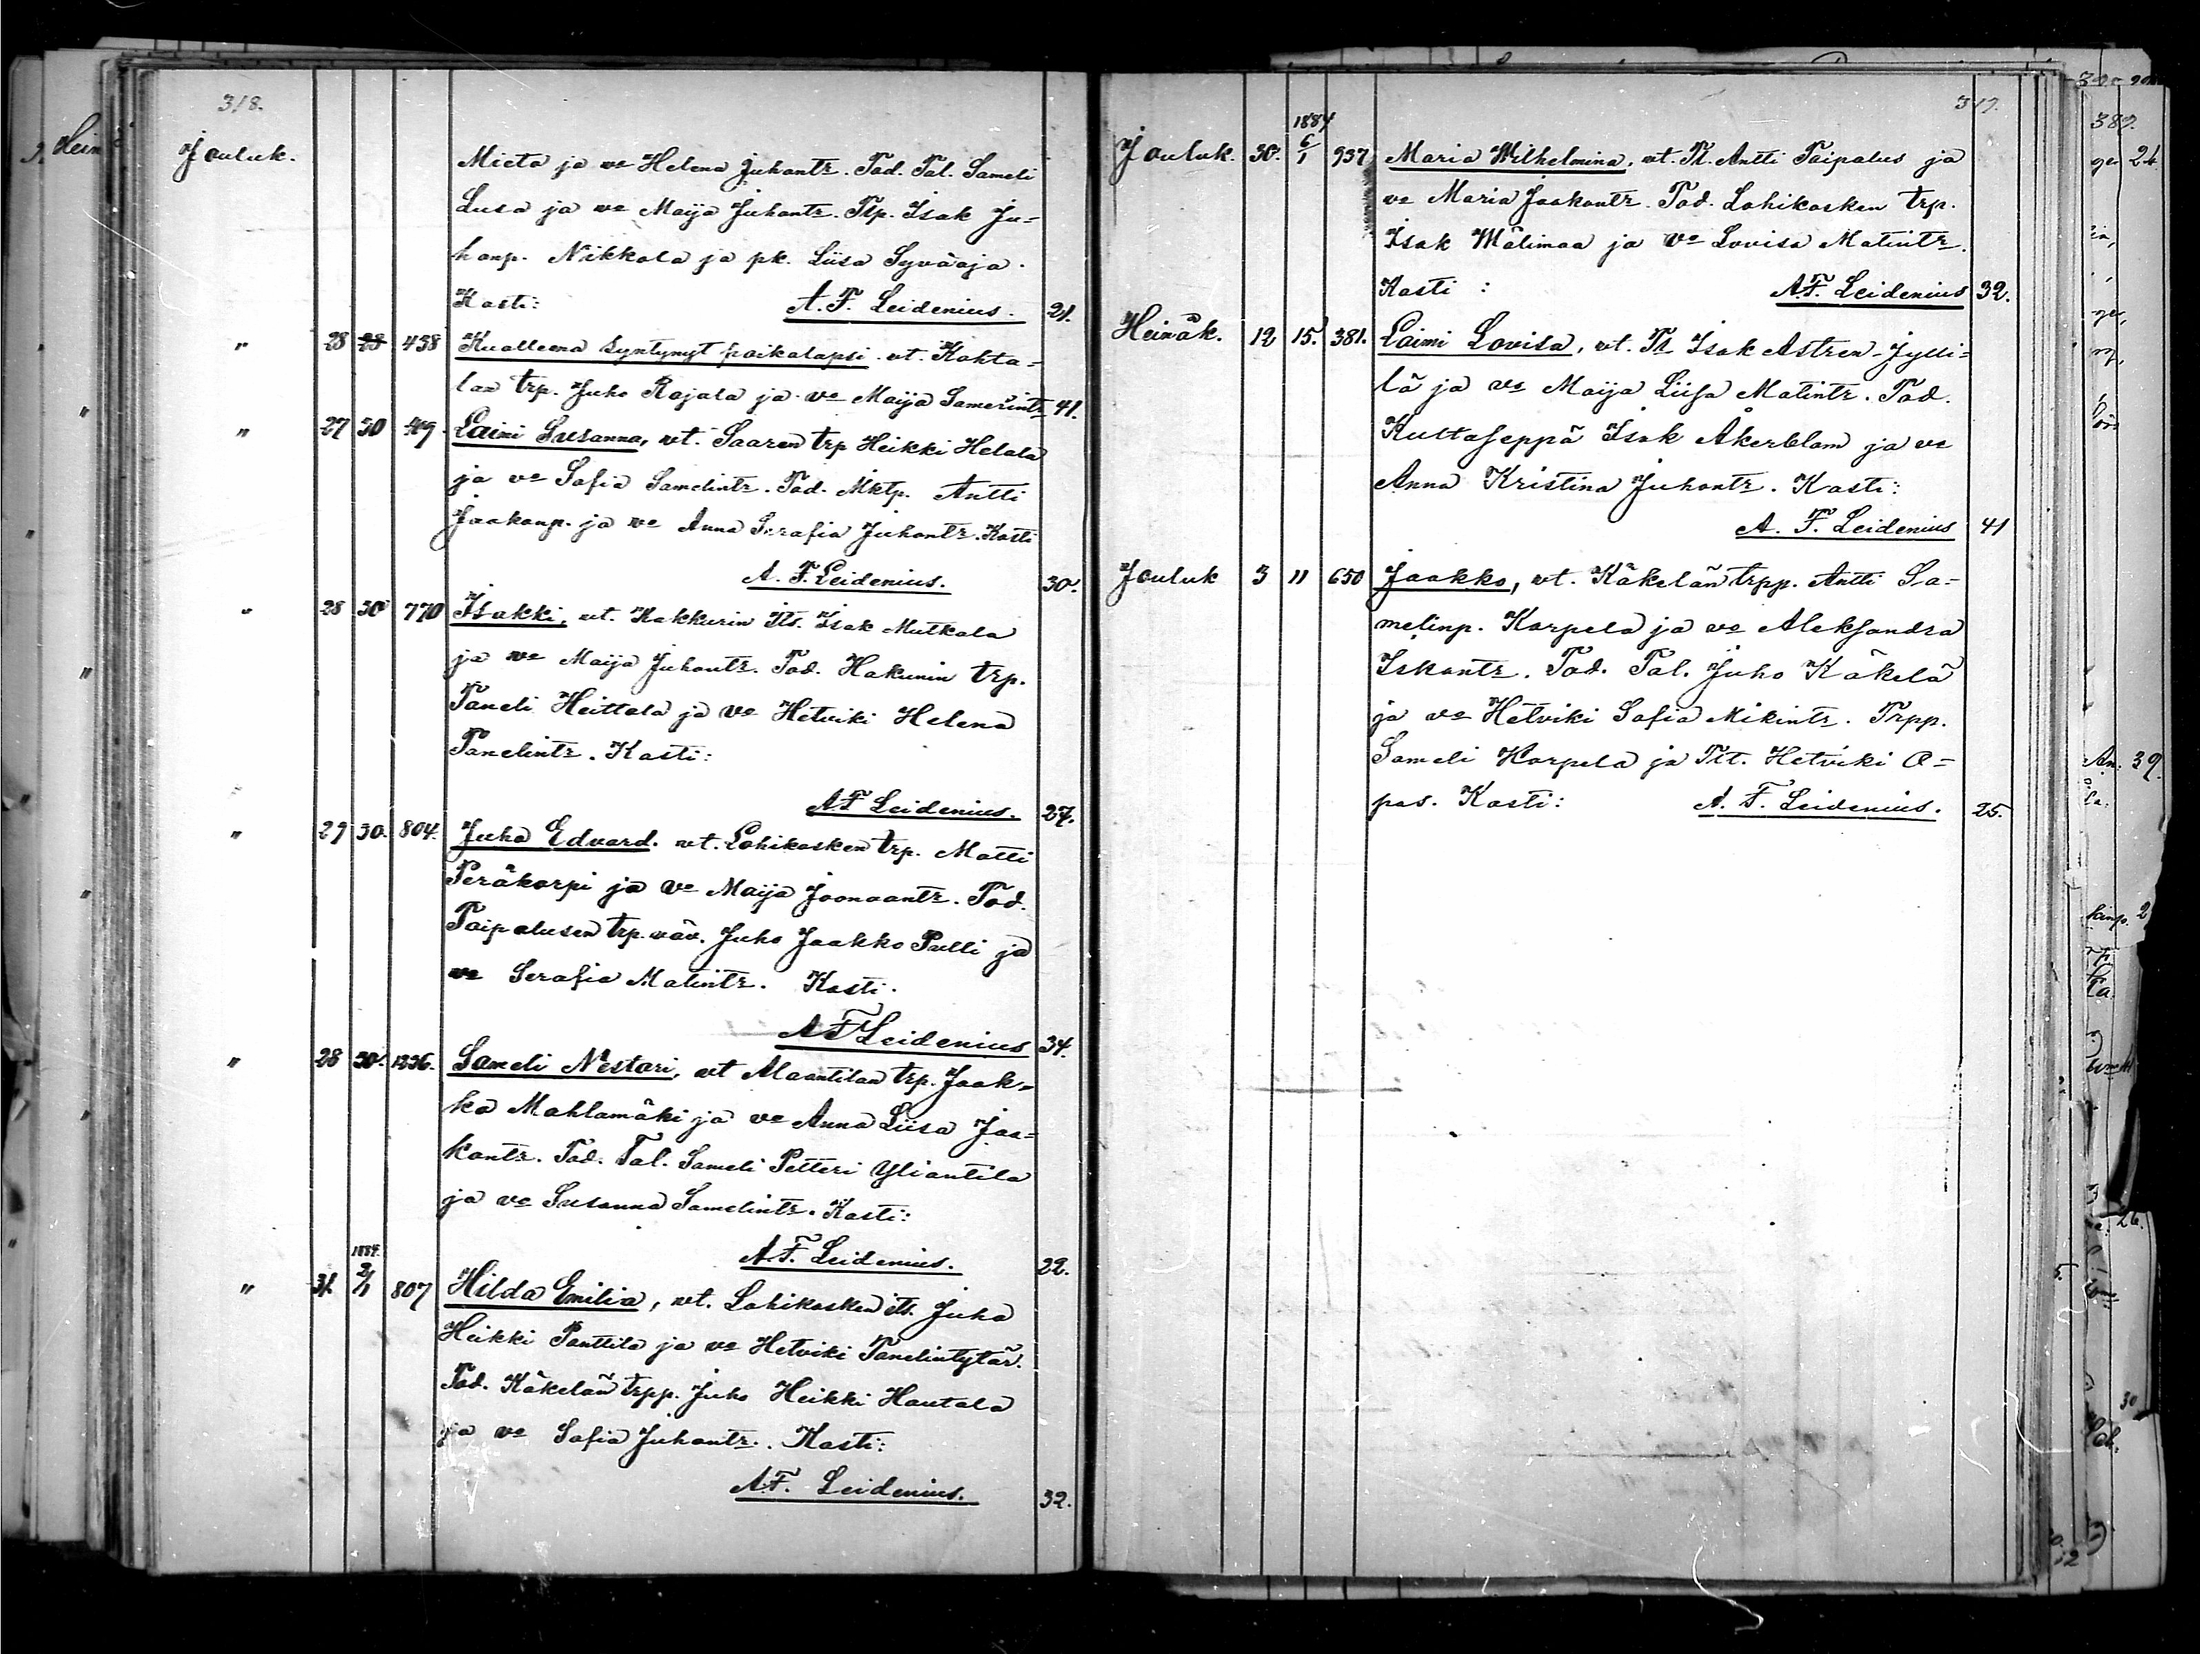 318.
Jouluk.
Mieto ja vo Helena Juhontr. Tod. Tal. Sameli
Lusa ja vo Maija Juhontr. Tlp. Isak Ju=
hanp. Nikkola ja pk. Liisa Syväoja.
Kasti: A. F. Leidenius. 21.
" 28 28 438 Kuolleena syntynyt poikalapsi. vt. Kokta=
lan trp. Juho Rajala ja vo Maija Samelintr 41.
" 27 30 419. Laimi Susanna, vt. Saaren trp Heikki Helala
ja vo Sofia Samelintr. Tod. Mktp. Antti
Jaakonp. ja vo Anna Serafia Juhontr. Kasti
A. F. Leidenius. 30.
" 28 30 770 Isakki, vt. Kakkurin Its. Isak Mutkala
ja vo Maija Juhontr. Tod. Hakunin trp.
Taneli Heittola ja vo Hetviki Helena
Tanelintr. Kasti:
A F Leidenius. 27.
" 29 30. 804. Juho Edvard. vt. Lohikosken trp. Matti
Peräkorpi ja vo Maija Joonaantr. Tod.
Taipalusen trp. väv. Juho Jaakko Pulli ja
vo Serafia Matintr. Kasti.
A F Leidenius 34.
" 28 30. 1236. Sameli Nestori, vt Alaantilan trp. Jaak=
ko Mahlamäki ja vo Anna Liisa Jaa=
kontr. Tod. Tal. Sameli Petteri Yliantila
ja vo Susanna Samelintr. Kasti:
A. F. Leidenius. 22.
1884.
" 31 2/1 807 Hilda Emilia, vt. Lohikosken its. Juho
Heikki Panttila ja vo Hetviki Tanelintytär.
Tod. Käkelän trpp. Juho Heikki Hautala
ja vo Sofia Juhontr. Kasti:
A. F. Leidenius. 32.
319.
1884
Jouluk. 30. 6/1 937 Maria Wilhelmina, vt. Tl. Antti Taipalus ja
vo Maria Jaakontr. Tod. Lohikosken trp.
Isak Wälimaa ja vo Lovisa Matintr.
Kasti : A. F. Leidenius 32.
Heinäk. 12 15. 381. Laimi Lovisa, vt. Tl Isak Astren-Jylli=
lä ja vo Maija Liisa Matintr. Tod.
Kultaseppä Isak Åkerblom ja vo
Anna Kristina Juhontr. Kasti:
A. F. Leidenius 41
Jouluk 3 11 650 Jaakko, vt. Käkelän trpp. Antti Sa=
melinp. Korpela ja vo Aleksandra
Iskontr. Tod. Tal. Juho Käkelä
ja vo Hetviki Sofia Mikintr. Trpp.
Sameli Korpela ja Tlt. Hetviki O=
pas. Kasti: A. F. Leidenius. 25.